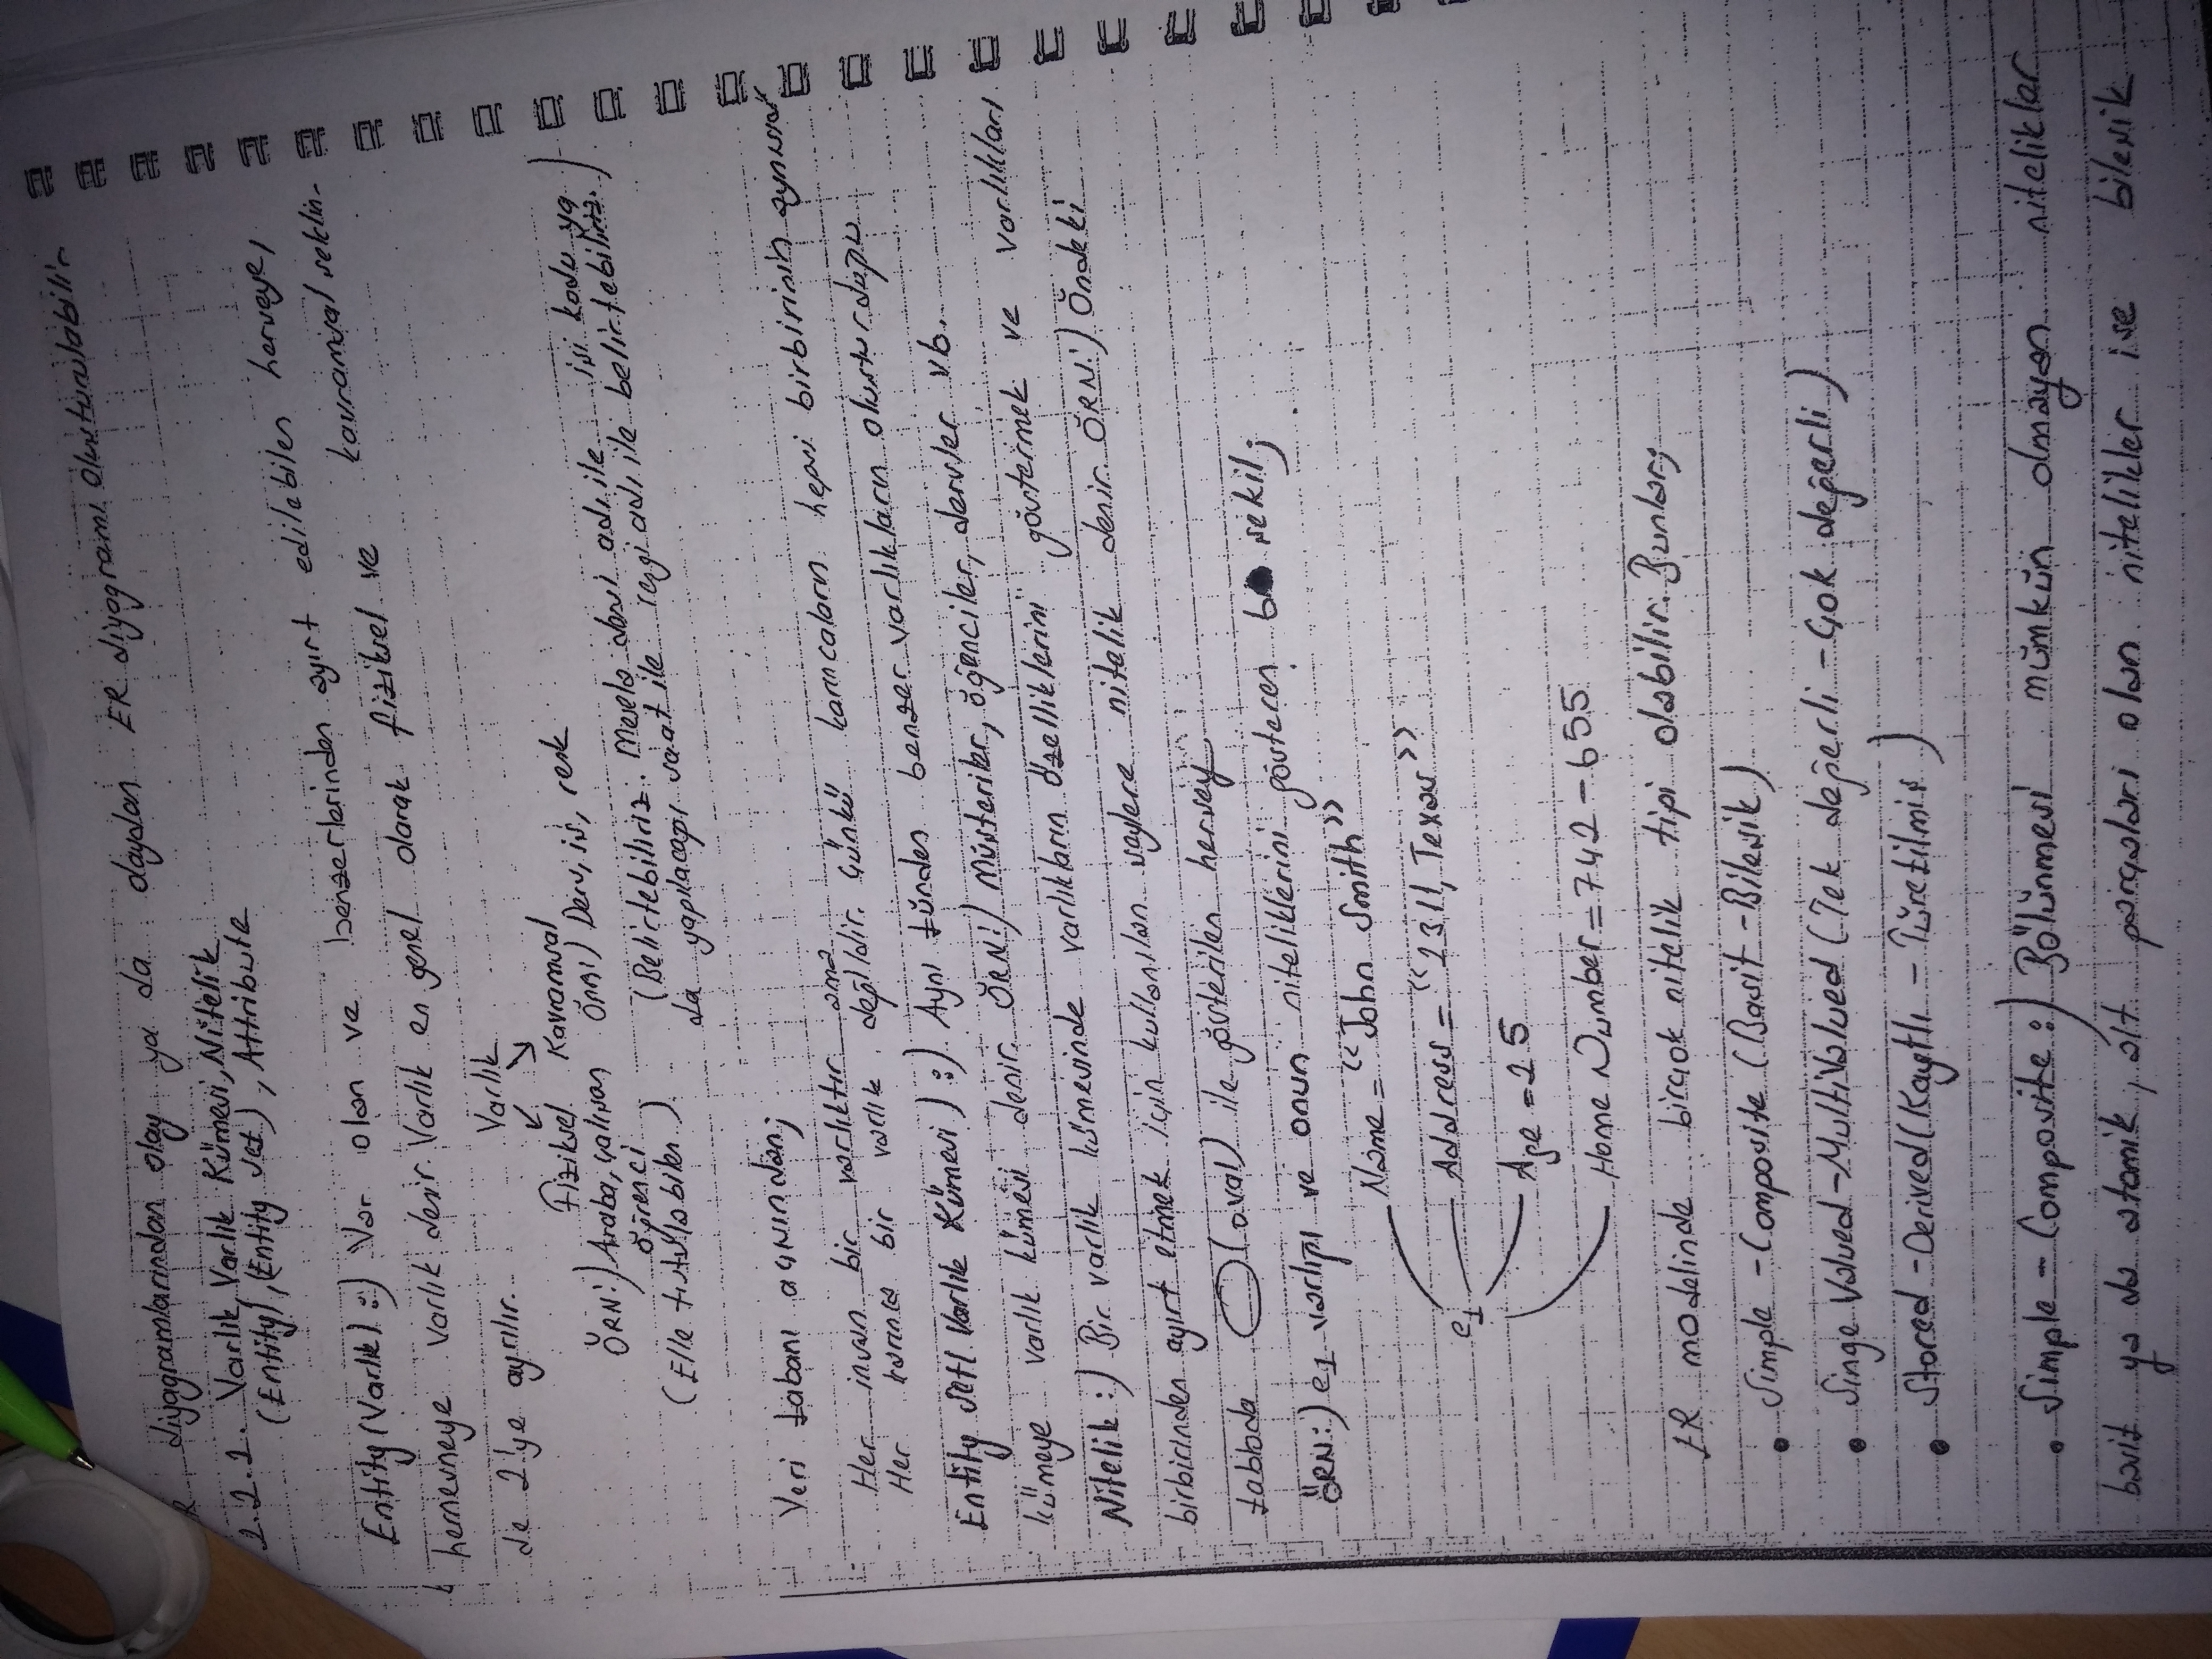 ER diyagramlarından olay ya da olaydan ER diyagramı oluşturulabilir.
2.2. Varlık, Varlık Kümesi, Nitelik
(Entity), (Entity set), Attribute
Entity (Varlık) :) Var olan ve benzerlerinden ayırt edilebilen herşeye,
herşeneye varlık denir Varlık en genel olarak fiziksel ve kavramsal şeklin-
de 2'ye ayrılır.
Varlık
Fiziksel Kavramsal
ÖRN:) Araba, çalışan öğrenci
Örn:) Ders, iş, renk
(Elle tutulabilen)
(Belirtebiliriz. Mesela dersi adı ile işi kodu ya
da yapılacağı saat ile rengi adı ile belirtebiliriz.)
Veri tabanı açısından;
Her insan bir varlıktır ama karıncaların hepsi birbirinin aynısıdır
Her karınca bir varlık değildir. Çünkü
Entity Set( Varlık Kümesi) :) Aynı türden benzer varlıkların oluşturduğu
kümeye varlık kümesi denir. ÖRN:) Müşteriler, öğenciler, dersler vb.
Nitelik :) Bir varlık kümesinde varlıkların özelliklerini göstermek ve varlıkları
birbirinden ayırt etmek için kullanılan şeylere nitelik denir. ÖRN:) Öndeki
tabloda (oval) ile gösterilen herşey
ÖRN:) e1 varlığı ve onun niteliklerini gösteren şekil;
e1
Name = "John Smith"
Address = "2311, Texas"
Age = 25
Home Number = 742 - 655
ER modelinde birçok nitelik tipi olabilir. Bunlar;
• Simple - Composite (Basit - Bileşik)
• Singe Valued - Multi Valued (Tek değerli - Çok değerli)
• Stored - Derived (Kayıtlı - Türetilmiş)
• Simple - Composite :) Bölünmesi mümkün olmayan nitelikler
basit ya da atomik, alt parçaları olan nitelikler ise bileşik